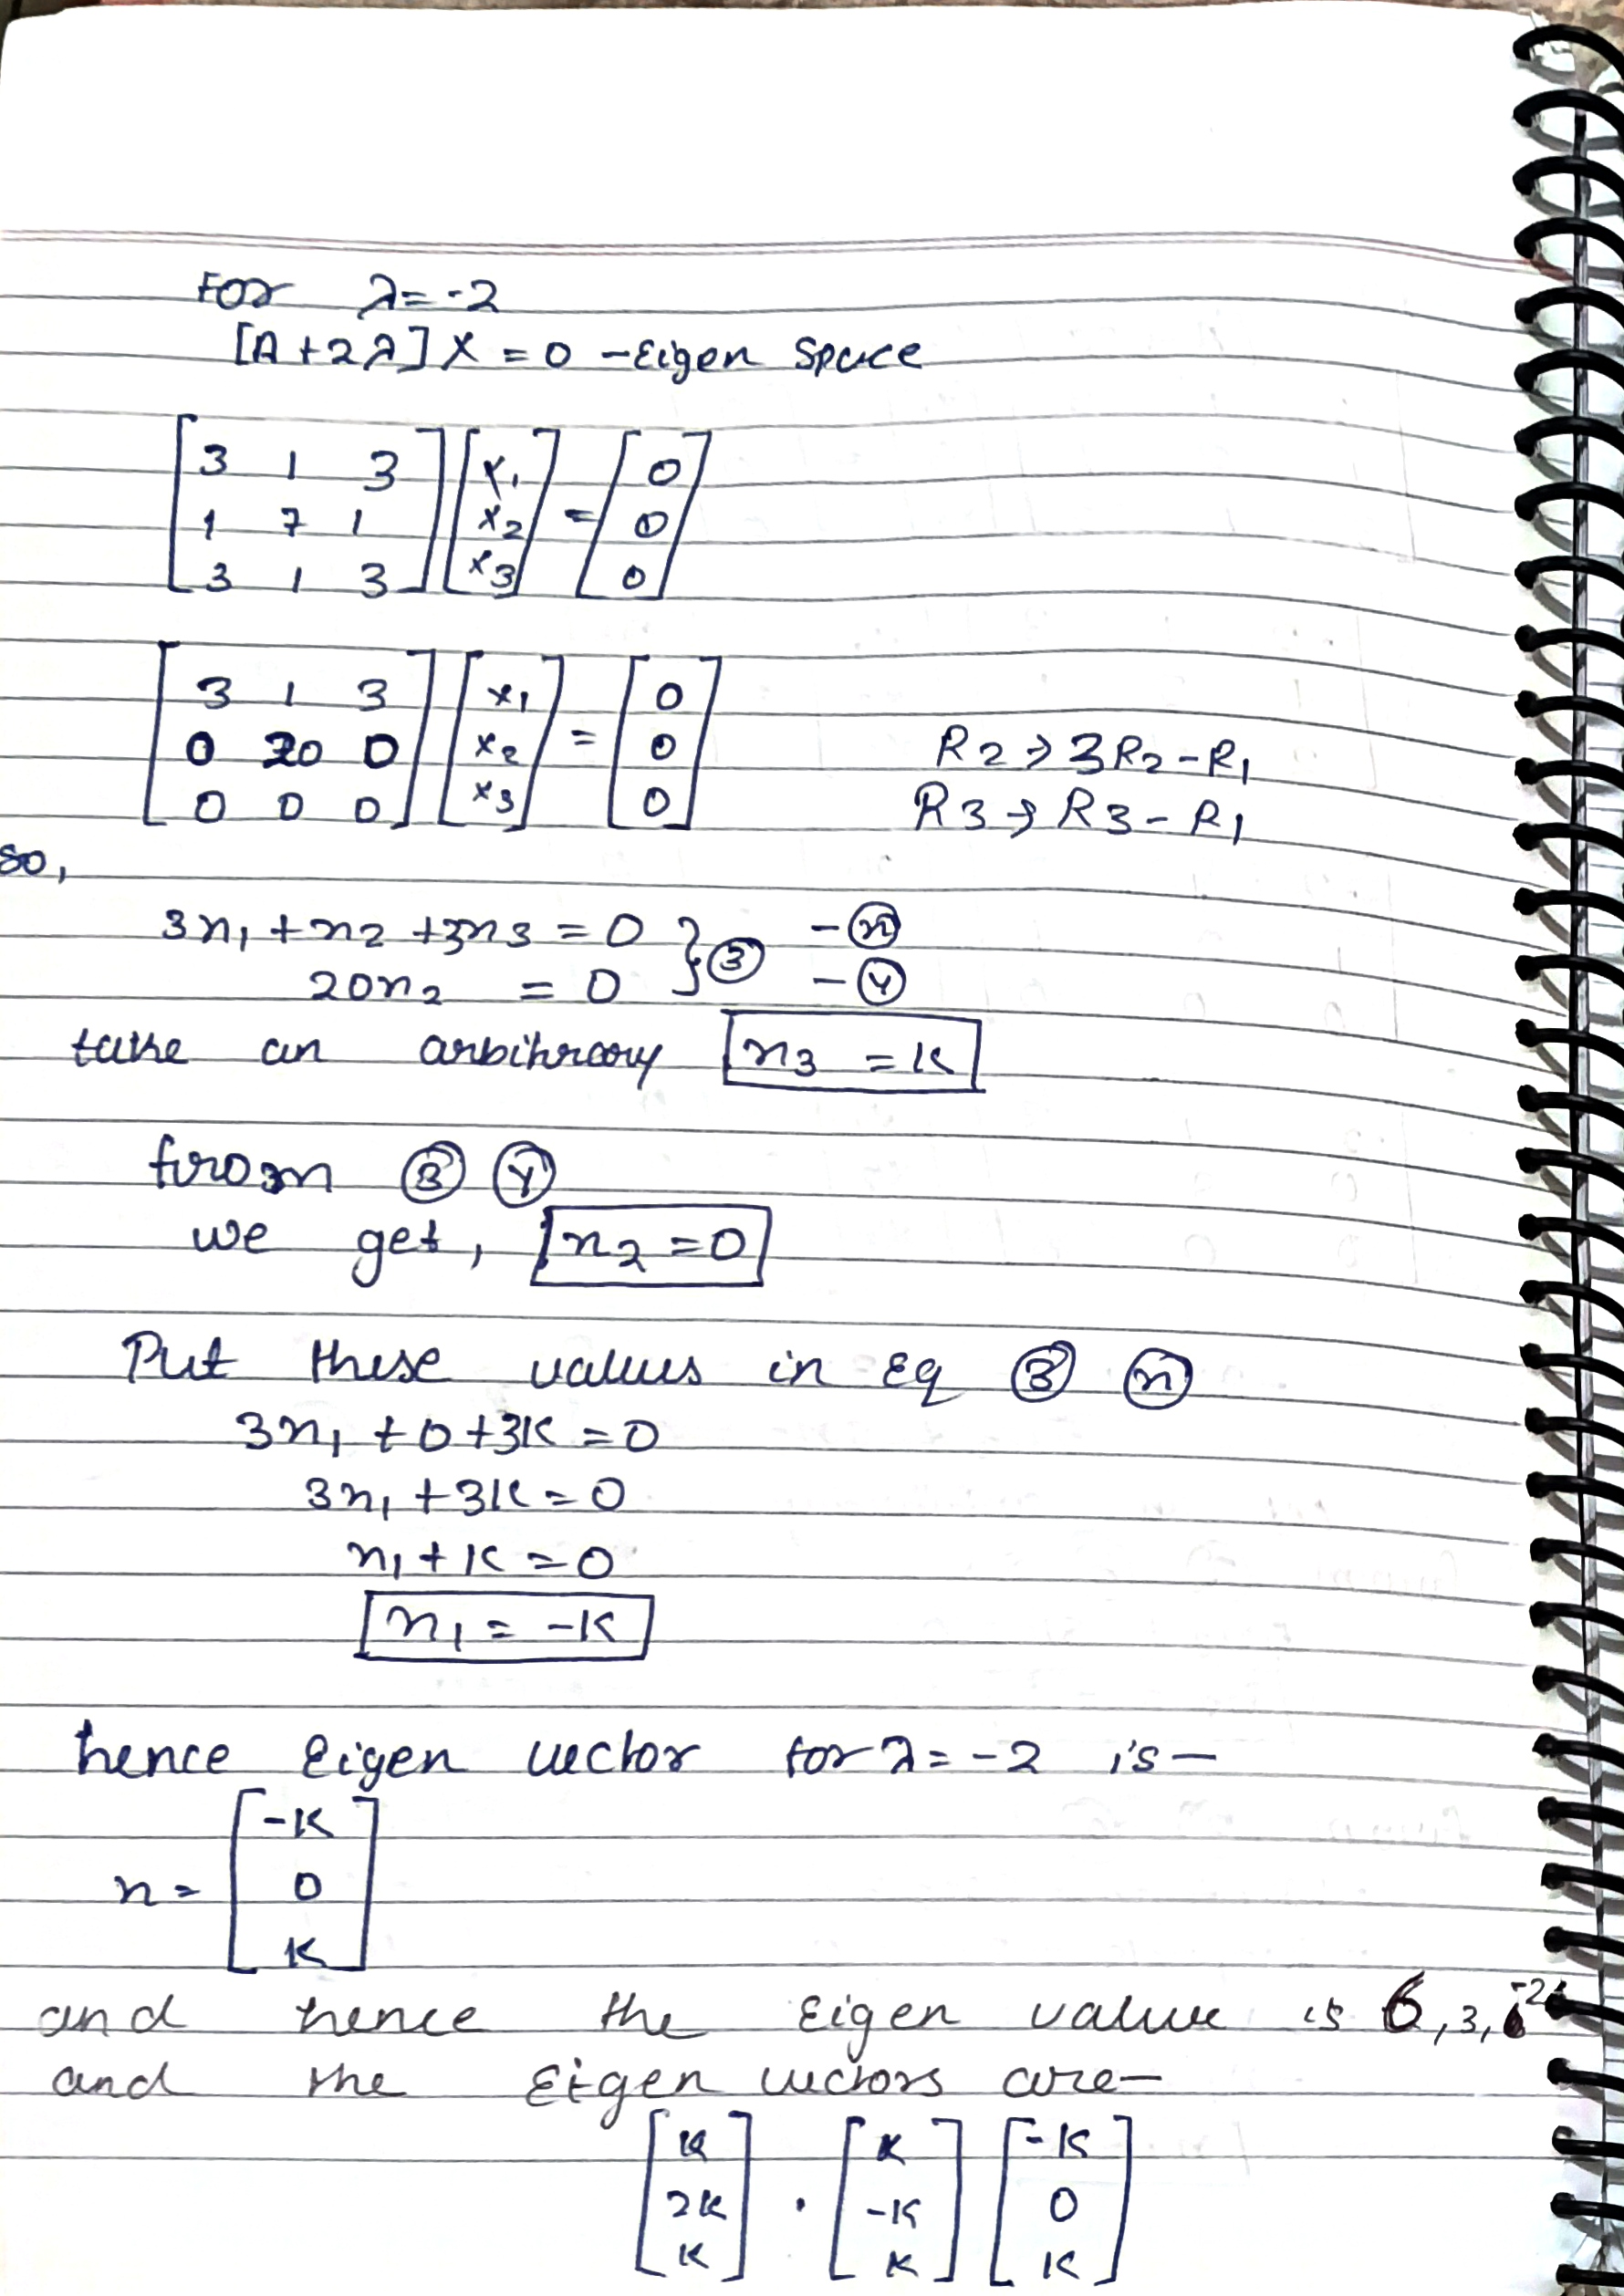 For λ=-2
[A+2λ]X=0 -Eigen Space
[3 1 3] [x1] = [0]
[1 7 1] [x2] [0]
[3 1 3] [x3] [0]
[3 1 3] [x1] = [0]
[0 20 0] [x2] [0] R2→3R2-R1
[0 0 0] [x3] [0] R3→R3-R1
so,
3x1+x2+3x3=0 } ③ -ⓧ
20x2 =0 -ⓨ
take an arbitrary x3=K
from ③ ⓨ
we get, x2=0
Put these values in Eq ③ ⓧ
3x1+0+3K=0
3x1+3K=0
x1+K=0
x1=-K
hence Eigen vector for λ=-2 is-
x= [-K]
[0]
[K]
and hence the Eigen value is 6,3,-2
and the Eigen vectors are-
[K] . [K] [-K]
[2K] [-K] [0]
[K] [K] [K]